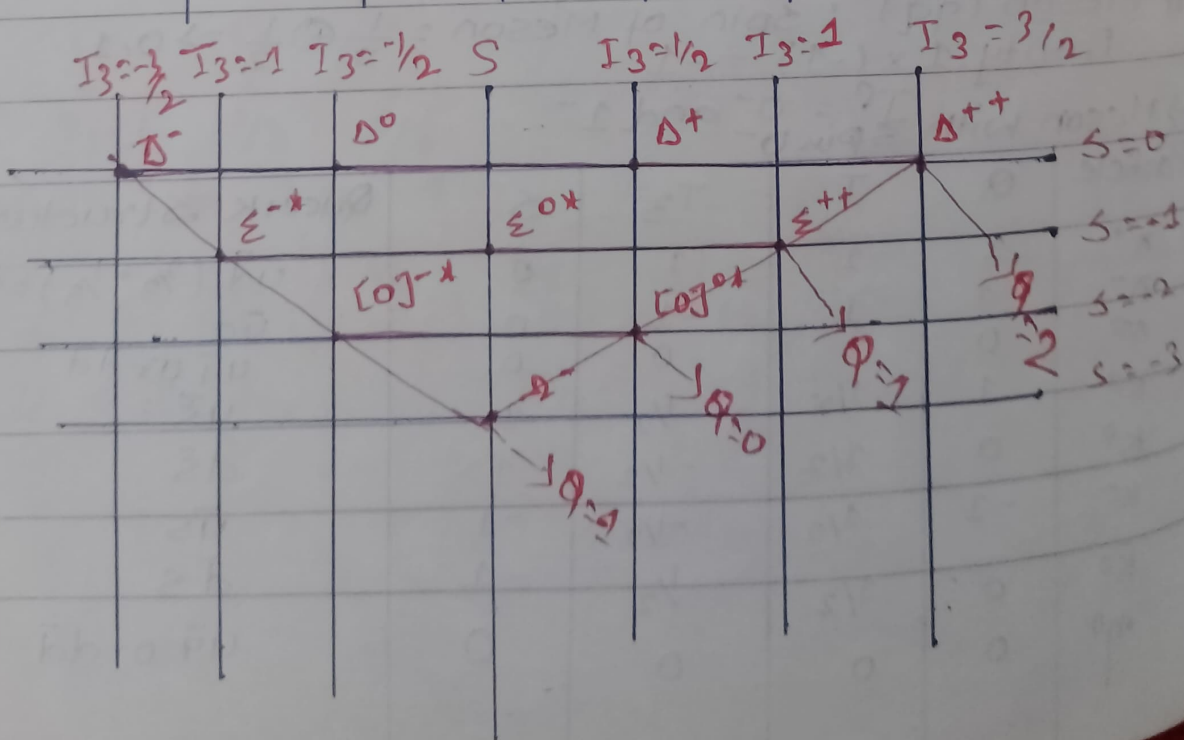 I3=-3/2 I3=-1 I3=-1/2 S I3=1/2 I3=1 I3=3/2
Δ- Δ0 Δ+ Δ++ S=0
Σ-* Σ0* Σ++ S=-1
[0]-* [0]0* Q=2 S=-2
Ω- Q=0 Q=1 S=-3
Q=-1